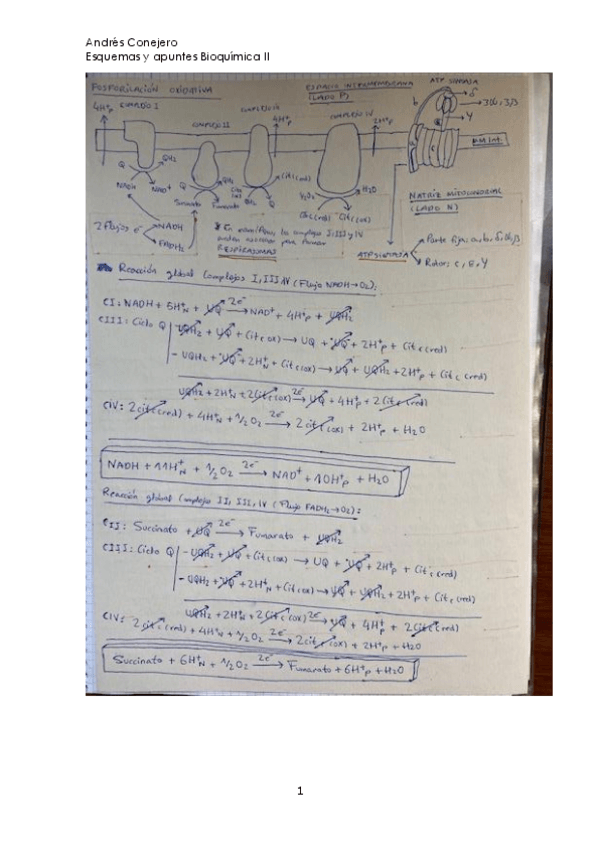 Andrés Conejero
Esquemas y apuntes Bioquímica II
FOSFORILACIÓN OXIDATIVA
ESPACIO INTERMEMBRANA
(LADO P)
ATP SINTASA
4H⁺p COMPLEJO I
COMPLEJO II
COMPLEJO III
4H⁺p
COMPLEJO IV
2H⁺p
b
δ
3α, 3β
γ
M.M. Int.
Q QH₂
NADH NAD⁺
Q QH₂
Succinato Fumarato
QH₂ Q
Cit c (ox)
½O₂ H₂O
Cit c (red) Cit c (ox)
MATRIZ MITOCONDRIAL
(LADO N)
2 Flujos e⁻ NADH
FADH₂
RESPIRASOMAS
ATP SINTASA
Parte fija: a, b, α, δ, β
Rotor: c, ε, γ
Reacción global Complejos I, III, IV (Flujo NADH → O₂):
CI: NADH + 5H⁺N + UQ 2e⁻→ NAD⁺ + 4H⁺p + UQH₂
CIII: Ciclo Q - UQH₂ + UQ + Cit c (ox) → UQ + ·UQ⁻ + 2H⁺p + Cit c (red)
- UQH₂ + ·UQ⁻ + 2H⁺N + Cit c (ox) → UQ + UQH₂ + 2H⁺p + Cit c (red)
UQH₂ + 2H⁺N + 2 Cit c (ox) 2e⁻→ UQ + 4H⁺p + 2 Cit c (red)
CIV: 2 cit c (red) + 4H⁺N + ½O₂ 2e⁻→ 2 cit c (ox) + 2H⁺p + H₂O
NADH + 11H⁺N + ½O₂ 2e⁻→ NAD⁺ + 10H⁺p + H₂O
Reacción global Complejo II, III, IV (Flujo FADH₂ → O₂):
CII: Succinato + UQ 2e⁻→ Fumarato + UQH₂
CIII: Ciclo Q - UQH₂ + UQ + Cit c (ox) → UQ + ·UQ⁻ + 2H⁺p + Cit c (red)
- UQH₂ + ·UQ⁻ + 2H⁺N + Cit c (ox) → UQ + UQH₂ + 2H⁺p + Cit c (red)
UQH₂ + 2H⁺N + 2 Cit c (ox) 2e⁻→ UQ + 4H⁺p + 2 Cit c (red)
CIV: 2 cit c (red) + 4H⁺N + ½O₂ 2e⁻→ 2 cit c (ox) + 2H⁺p + H₂O
Succinato + 6H⁺N + ½O₂ 2e⁻→ Fumarato + 6H⁺p + H₂O
1